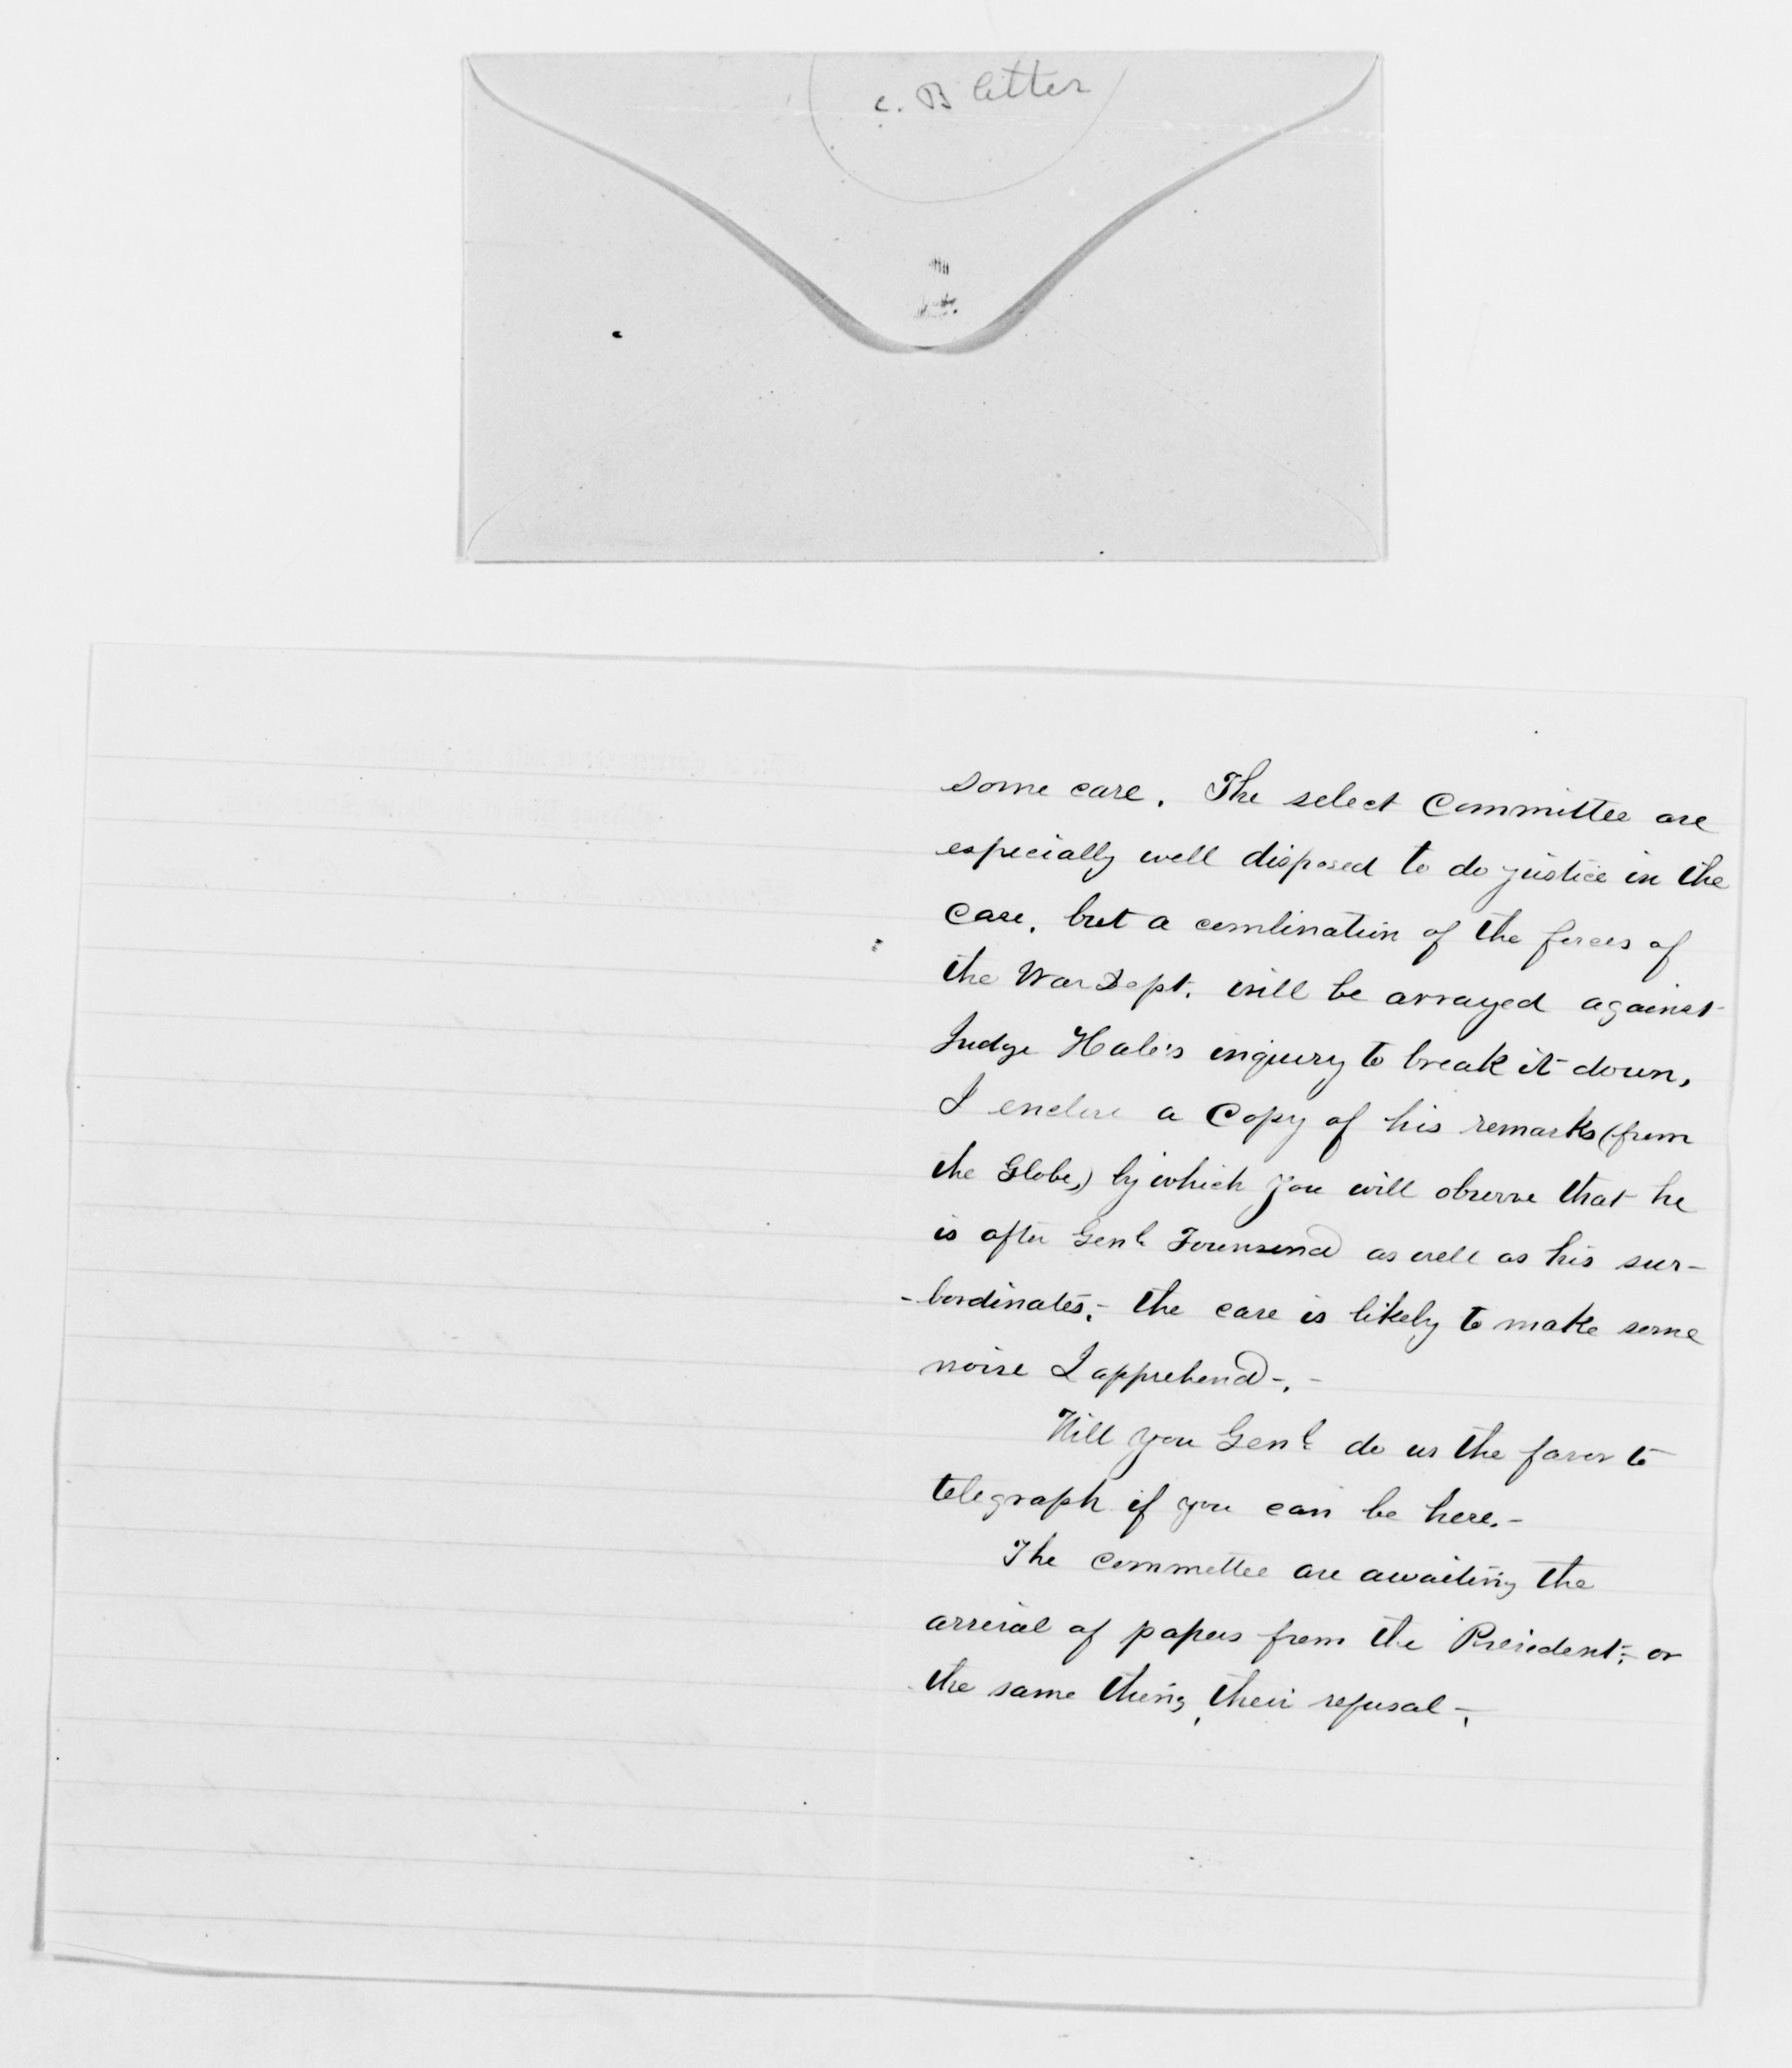 c. B letter
some care. The select Committee are
especially well disposed to do justice in the
case. but a combination of the forces of
the War Dept. will be arrayed against
Judge Hale's inquiry to break it down,
I enclose a Copy of his remarks (from
the Globe,) by which you will observe that he
is after Genl. Townsend as well as his sur-
-bordinates.- the case is likely to make some
noise I apprehend-.-
Will you Genl. do us the favor to
telegraph if you can be here.-
The committee are awaiting the
arrival of papers from the President;- or
the same thing, their refusal-.